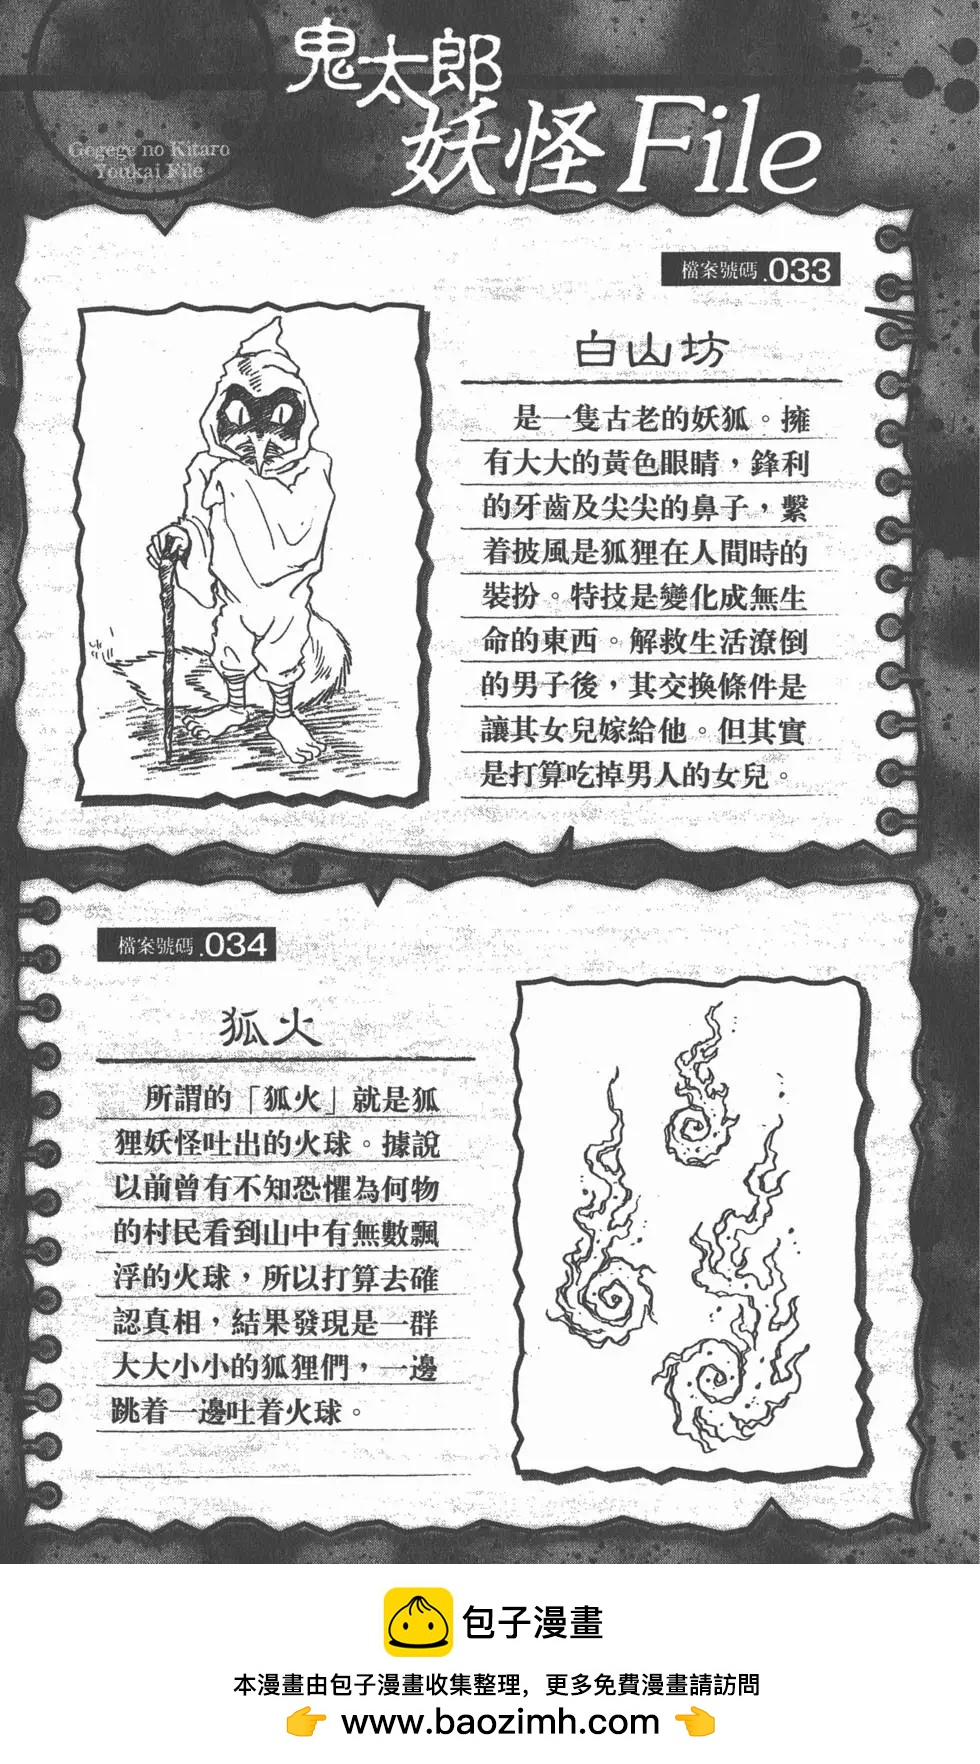 鬼太郎
妖怪File
Gegege no Kitaro
Youkai File
檔案號碼.033
白山坊
是一隻古老的妖狐。擁
有大大的黃色眼睛，鋒利
的牙齒及尖尖的鼻子，繫
着披風是狐狸在人間時的
裝扮。特技是變化成無生
命的東西。解救生活潦倒
的男子後，其交換條件是
讓其女兒嫁給他。但其實
是打算吃掉男人的女兒。
檔案號碼.034
狐火
所謂的「狐火」就是狐
狸妖怪吐出的火球。據說
以前曾有不知恐懼為何物
的村民看到山中有無數飄
浮的火球，所以打算去確
認真相，結果發現是一群
大大小小的狐狸們，一邊
跳着一邊吐着火球。
包子漫畫
本漫畫由包子漫畫收集整理，更多免費漫畫請訪問
👉 www.baozimh.com 👈